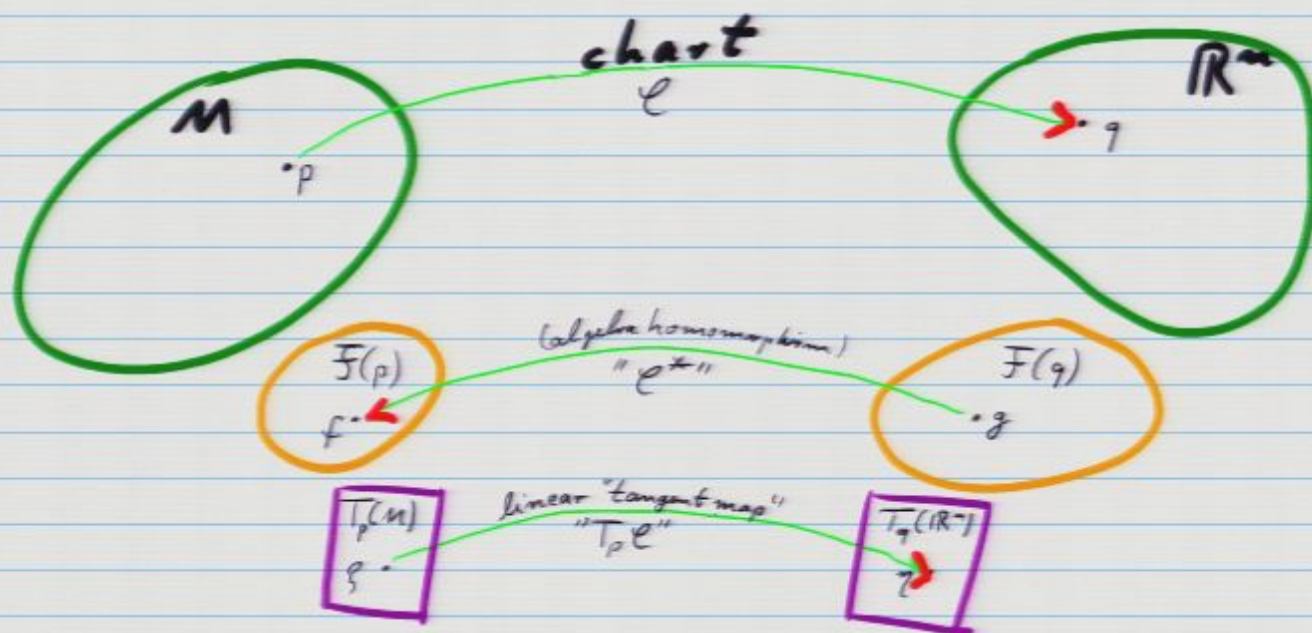 chart
φ
M
ℝⁿ
• p
• q
(algebra homomorphism)
"φ*"
F(p)
F(q)
f •
• g
linear "tangent map"
"Tₚφ"
Tₚ(M)
T_q(ℝⁿ)
ξ •
η